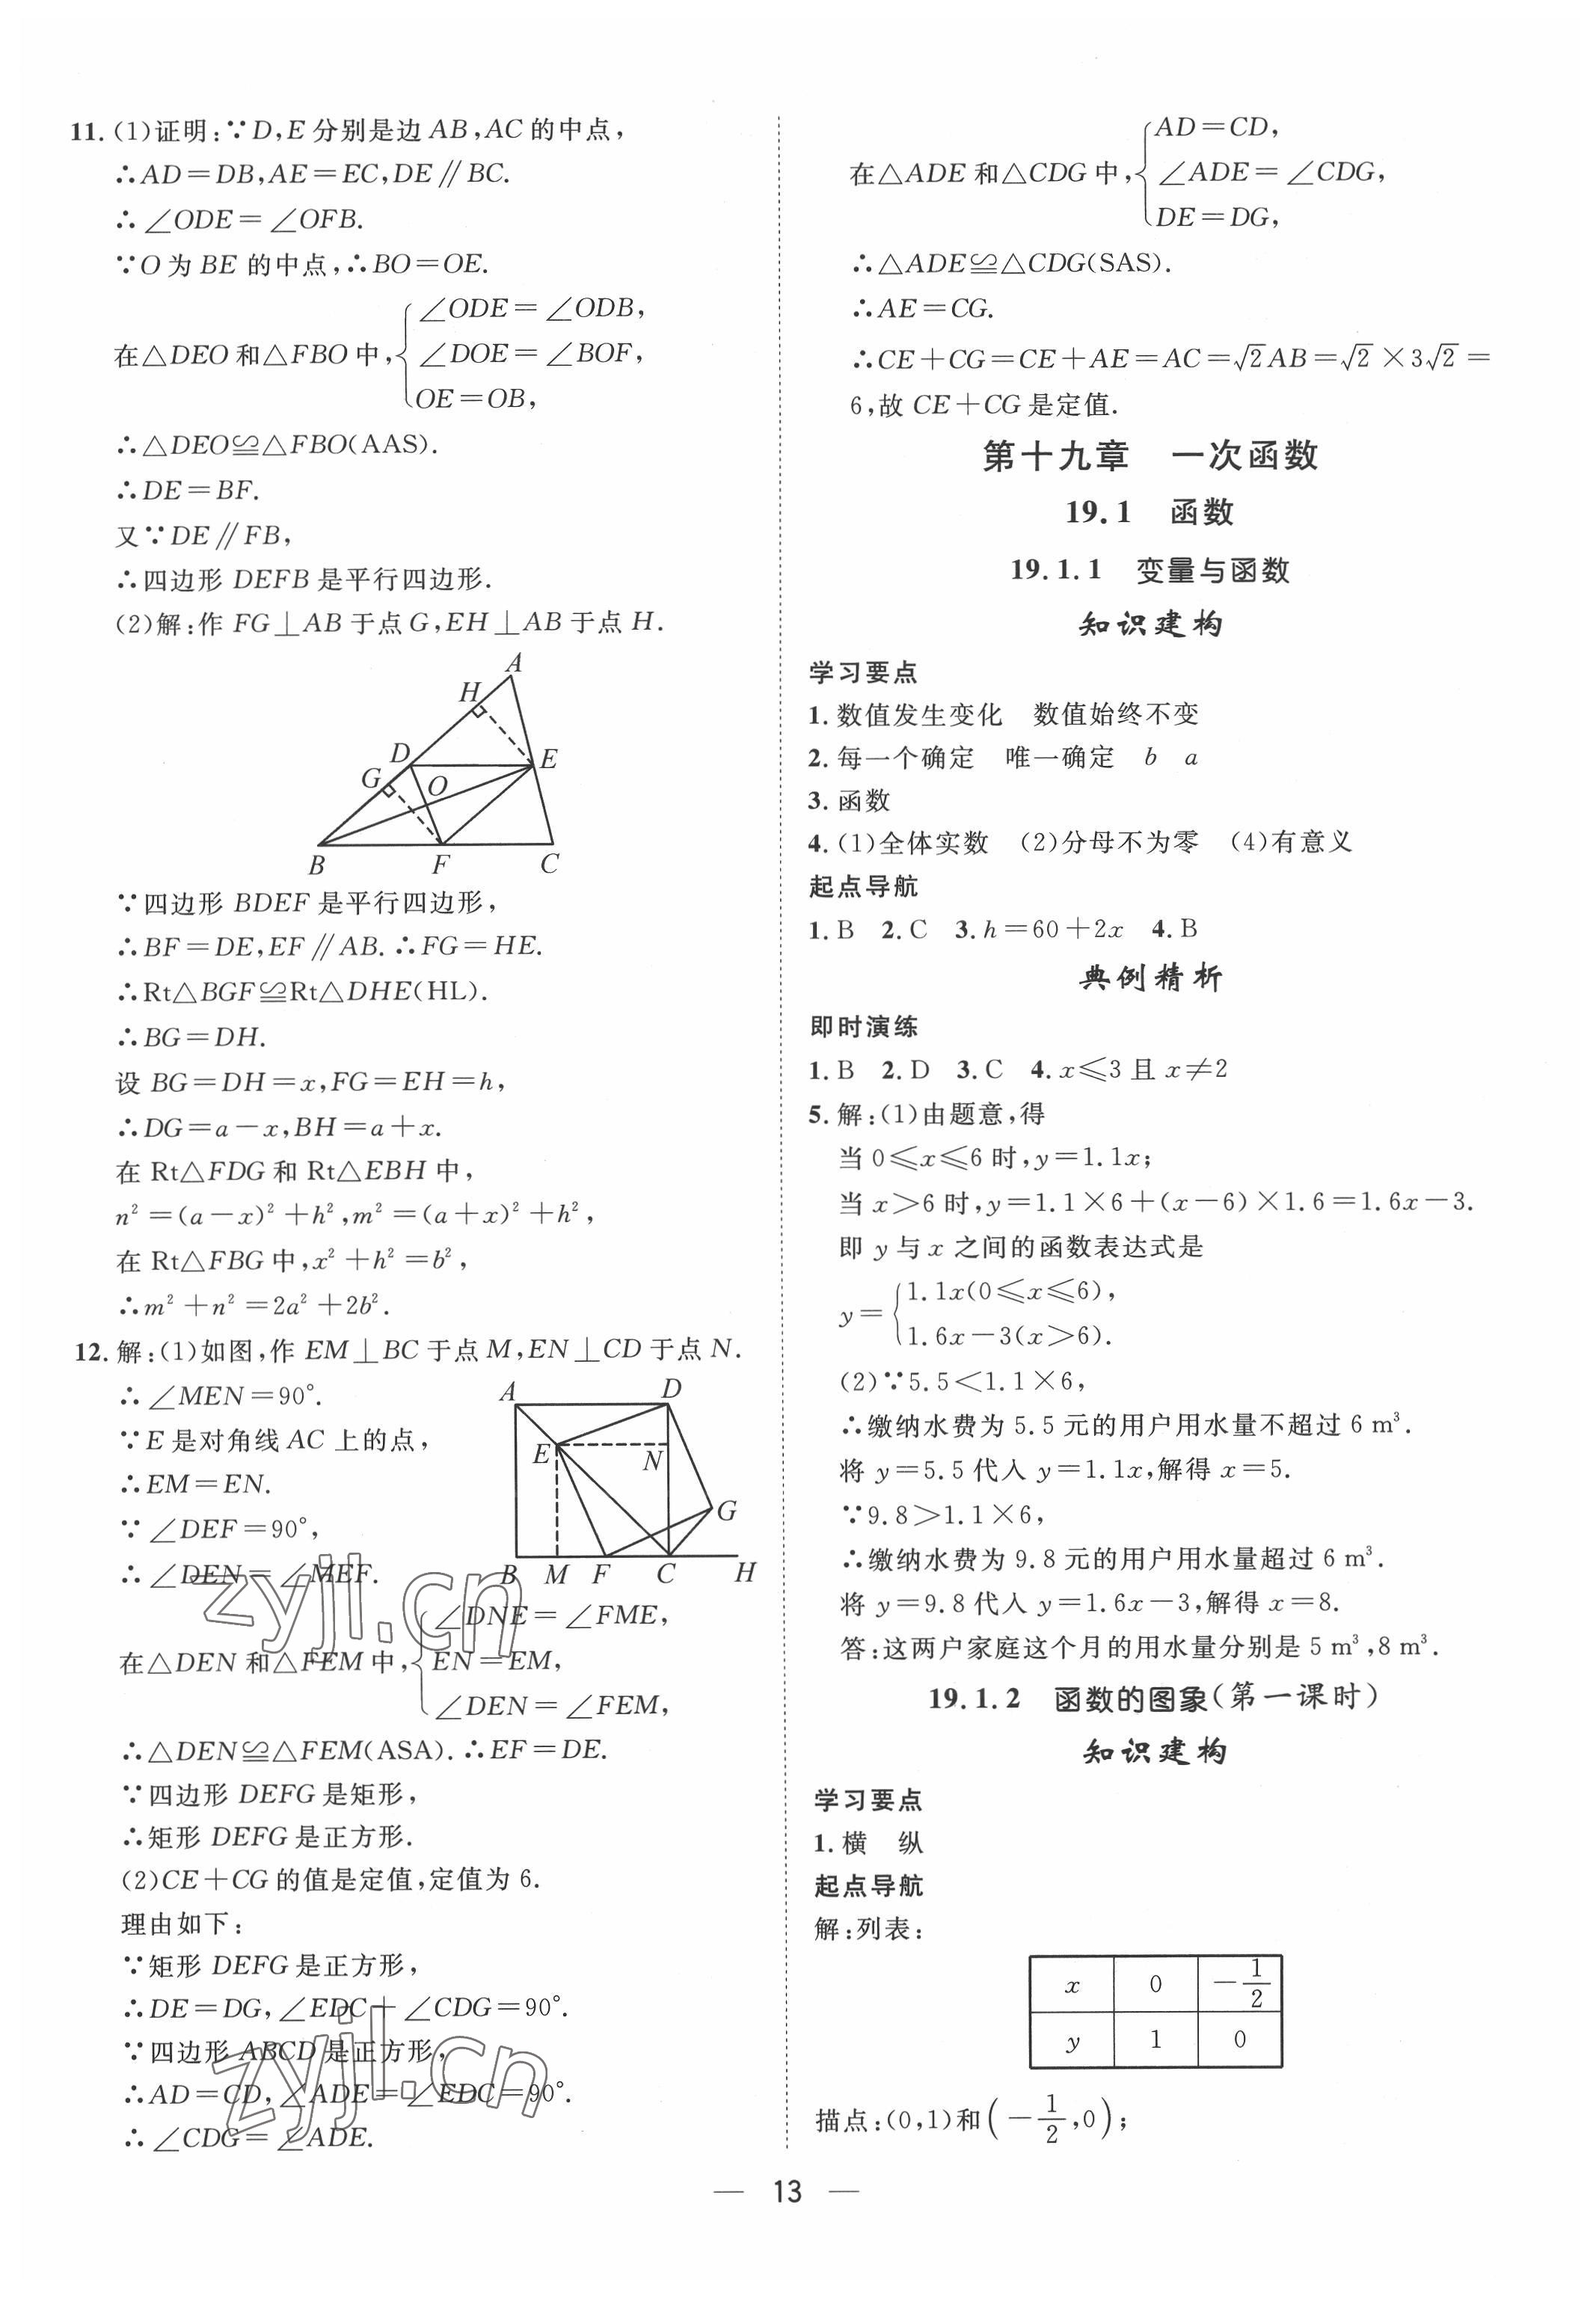 11. (1)证明:∵D,E分别是边AB,AC的中点,
∴AD=DB,AE=EC,DE∥BC.
∴∠ODE=∠OFB.
∵O为BE的中点,∴BO=OE.
在△DEO和△FBO中,{∠ODE=∠ODB,
∠DOE=∠BOF,
OE=OB,
∴△DEO≌△FBO(AAS).
∴DE=BF.
又∵DE∥FB,
∴四边形DEFB是平行四边形.
(2)解:作FG⊥AB于点G,EH⊥AB于点H.
A
H
D
E
G
O
B F C
∵四边形BDEF是平行四边形,
∴BF=DE,EF∥AB.∴FG=HE.
∴Rt△BGF≌Rt△DHE(HL).
∴BG=DH.
设BG=DH=x,FG=EH=h,
∴DG=a-x,BH=a+x.
在Rt△FDG和Rt△EBH中,
n²=(a-x)²+h²,m²=(a+x)²+h²,
在Rt△FBG中,x²+h²=b²,
∴m²+n²=2a²+2b².
12. 解:(1)如图,作EM⊥BC于点M,EN⊥CD于点N.
∴∠MEN=90°.
∵E是对角线AC上的点,
∴EM=EN.
∵∠DEF=90°,
∴∠DEN=∠MEF.
A D
E N
G
B M F C H
在△DEN和△FEM中,{∠DNE=∠FME,
EN=EM,
∠DEN=∠FEM,
∴△DEN≌△FEM(ASA).∴EF=DE.
∵四边形DEFG是矩形,
∴矩形DEFG是正方形.
(2)CE+CG的值是定值,定值为6.
理由如下:
∵矩形DEFG是正方形,
∴DE=DG,∠EDC+∠CDG=90°.
∵四边形ABCD是正方形,
∴AD=CD,∠ADE=∠EDC=90°.
∴∠CDG=∠ADE.
zyjl.cn
zyjl.cn
在△ADE和△CDG中,{AD=CD,
∠ADE=∠CDG,
DE=DG,
∴△ADE≌△CDG(SAS).
∴AE=CG.
∴CE+CG=CE+AE=AC=√2AB=√2×3√2=
6,故CE+CG是定值.
第十九章 一次函数
19.1 函数
19.1.1 变量与函数
知识建构
学习要点
1. 数值发生变化 数值始终不变
2. 每一个确定 唯一确定 b a
3. 函数
4. (1)全体实数 (2)分母不为零 (4)有意义
起点导航
1. B 2. C 3. h=60+2x 4. B
典例精析
即时演练
1. B 2. D 3. C 4. x≤3且x≠2
5. 解:(1)由题意,得
当0≤x≤6时,y=1.1x;
当x>6时,y=1.1×6+(x-6)×1.6=1.6x-3.
即y与x之间的函数表达式是
y={1.1x(0≤x≤6),
1.6x-3(x>6).
(2)∵5.5<1.1×6,
∴缴纳水费为5.5元的用户用水量不超过6 m³.
将y=5.5代入y=1.1x,解得x=5.
∵9.8>1.1×6,
∴缴纳水费为9.8元的用户用水量超过6 m³.
将y=9.8代入y=1.6x-3,解得x=8.
答:这两户家庭这个月的用水量分别是5 m³,8 m³.
19.1.2 函数的图象(第一课时)
知识建构
学习要点
1. 横 纵
起点导航
解:列表:
x 0 -1/2
y 1 0
描点:(0,1)和(-1/2,0);
— 13 —